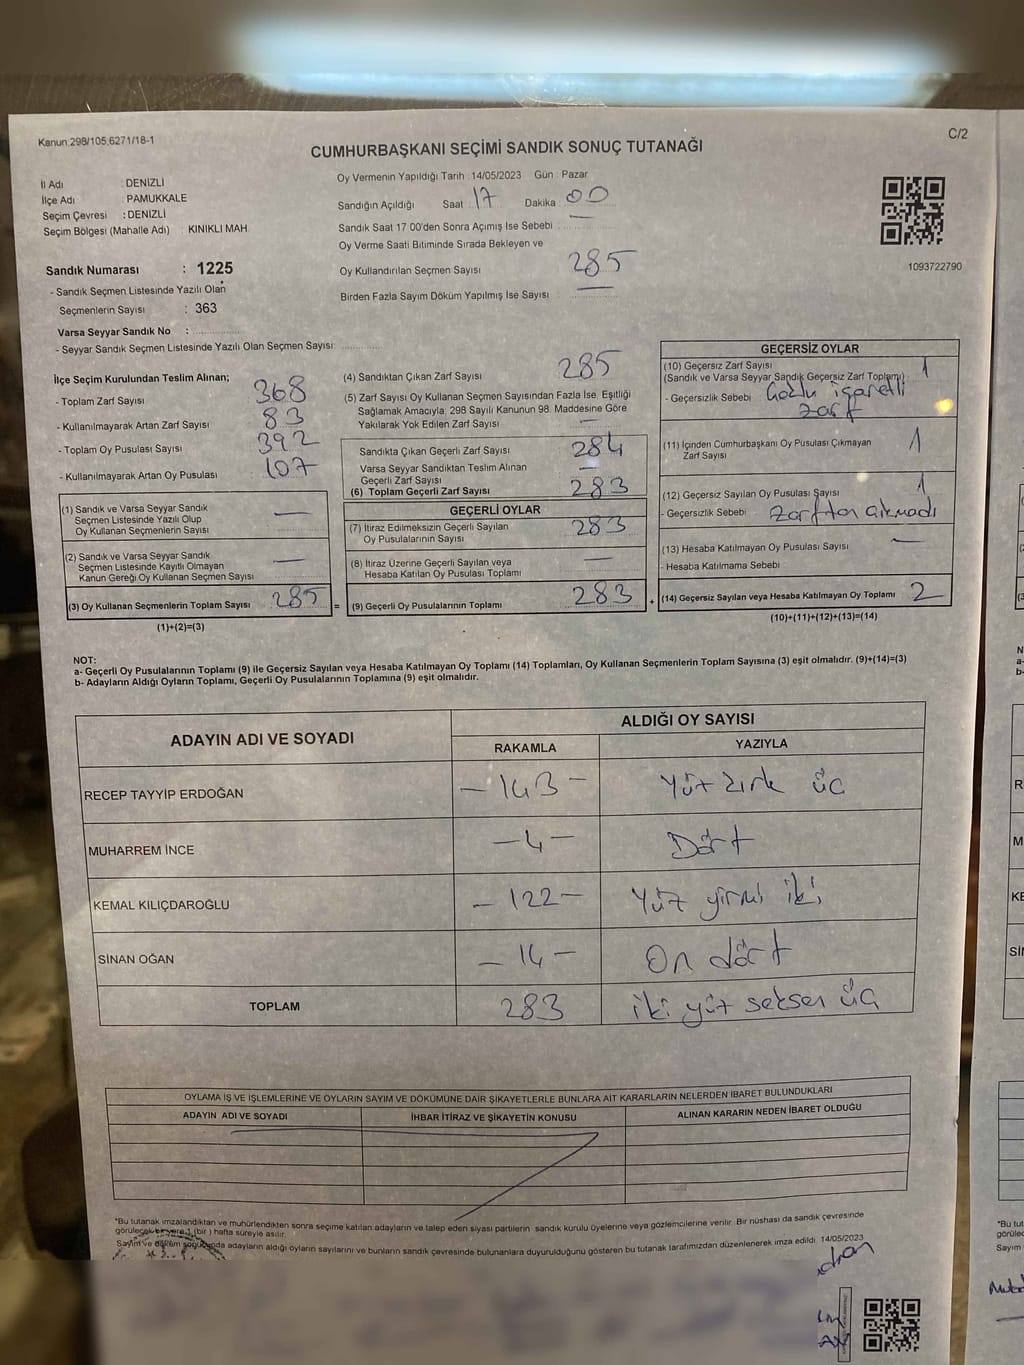 Kanun:298/105,6271/18-1
C/2
CUMHURBAŞKANI SEÇİMİ SANDIK SONUÇ TUTANAĞI
İl Adı : DENİZLİ
İlçe Adı : PAMUKKALE
Seçim Çevresi : DENİZLİ
Seçim Bölgesi (Mahalle Adı) : KINIKLI MAH.
Sandık Numarası : 1225
- Sandık Seçmen Listesinde Yazılı Olan
Seçmenlerin Sayısı : 363
Varsa Seyyar Sandık No :
- Seyyar Sandık Seçmen Listesinde Yazılı Olan Seçmen Sayısı:
Oy Vermenin Yapıldığı Tarih : 14/05/2023 Gün : Pazar
Sandığın Açıldığı Saat 17 Dakika : 00
Sandık Saat 17 00'den Sonra Açımış İse Sebebi :
Oy Verme Saati Bitiminde Sırada Bekleyen ve
Oy Kullandırılan Seçmen Sayısı 285
Birden Fazla Sayım Döküm Yapılmış İse Sayısı :
1093722790
İlçe Seçim Kurulundan Teslim Alınan;
- Toplam Zarf Sayısı 368
- Kullanılmayarak Artan Zarf Sayısı 83
- Toplam Oy Pusulası Sayısı 392
- Kullanılmayarak Artan Oy Pusulası 107
(1) Sandık ve Varsa Seyyar Sandık
Seçmen Listesinde Yazılı Olup
Oy Kullanan Seçmenlerin Sayısı —
(2) Sandık ve Varsa Seyyar Sandık
Seçmen Listesinde Kayıtlı Olmayan
Kanun Gereği Oy Kullanan Seçmen Sayısı —
(3) Oy Kullanan Seçmenlerin Toplam Sayısı 285 =
(1)+(2)=(3)
(4) Sandıktan Çıkan Zarf Sayısı 285
(5) Zarf Sayısı Oy Kullanan Seçmen Sayısından Fazla İse, Eşitliği
Sağlamak Amacıyla, 298 Sayılı Kanunun 98. Maddesine Göre
Yakılarak Yok Edilen Zarf Sayısı —
Sandıkta Çıkan Geçerli Zarf Sayısı 284
Varsa Seyyar Sandıktan Teslim Alınan
Geçerli Zarf Sayısı —
(6) Toplam Geçerli Zarf Sayısı 283
GEÇERLİ OYLAR
(7) İtiraz Edilmeksizin Geçerli Sayılan
Oy Pusulalarının Sayısı 283
(8) İtiraz Üzerine Geçerli Sayılan veya
Hesaba Katılan Oy Pusulası Toplamı —
(9) Geçerli Oy Pusulalarının Toplamı 283 +
GEÇERSİZ OYLAR
(10) Geçersiz Zarf Sayısı 1
(Sandık ve Varsa Seyyar Sandık Geçersiz Zarf Toplamı)
- Geçersizlik Sebebi işaretli
zarf
(11) İçinden Cumhurbaşkanı Oy Pusulası Çıkmayan
Zarf Sayısı 1
(12) Geçersiz Sayılan Oy Pusulası Sayısı 1
- Geçersizlik Sebebi zarftan çıkmadı
(13) Hesaba Katılmayan Oy Pusulası Sayısı —
- Hesaba Katılmama Sebebi
(14) Geçersiz Sayılan veya Hesaba Katılmayan Oy Toplamı 2
(10)+(11)+(12)+(13)=(14)
NOT:
a- Geçerli Oy Pusulalarının Toplamı (9) ile Geçersiz Sayılan veya Hesaba Katılmayan Oy Toplamı (14) Toplamları, Oy Kullanan Seçmenlerin Toplam Sayısına (3) eşit olmalıdır. (9)+(14)=(3)
b- Adayların Aldığı Oyların Toplamı, Geçerli Oy Pusulalarının Toplamına (9) eşit olmalıdır.
ADAYIN ADI VE SOYADI
ALDIĞI OY SAYISI
RAKAMLA YAZIYLA
RECEP TAYYİP ERDOĞAN - 143 - Yüz kırk üç
MUHARREM İNCE - 4 - Dört
KEMAL KILIÇDAROĞLU - 122 - Yüz yirmi iki
SİNAN OĞAN - 14 - On dört
TOPLAM 283 iki yüz seksen üç
OYLAMA İŞ VE İŞLEMLERİNE VE OYLARIN SAYIM VE DÖKÜMÜNE DAİR ŞİKAYETLERLE BUNLARA AİT KARARLARIN NELERDEN İBARET BULUNDUKLARI
ADAYIN ADI VE SOYADI İHBAR İTİRAZ VE ŞİKAYETİN KONUSU ALINAN KARARIN NEDEN İBARET OLDUĞU
*Bu tutanak imzalandıktan ve mühürlendikten sonra seçime katılan adayların ve talep eden siyasi partilerin sandık kurulu üyelerine veya gözlemcilerine verilir. Bir nüshası da sandık çevresinde
görülecek bir yere 1 (bir) hafta süreyle asılır.
Sayım ve döküm sonucunda adayların aldığı oyların sayılarını ve bunların sandık çevresinde bulunanlara duyurulduğunu gösteren bu tutanak tarafımızdan düzenlenerek imza edildi. 14/05/2023